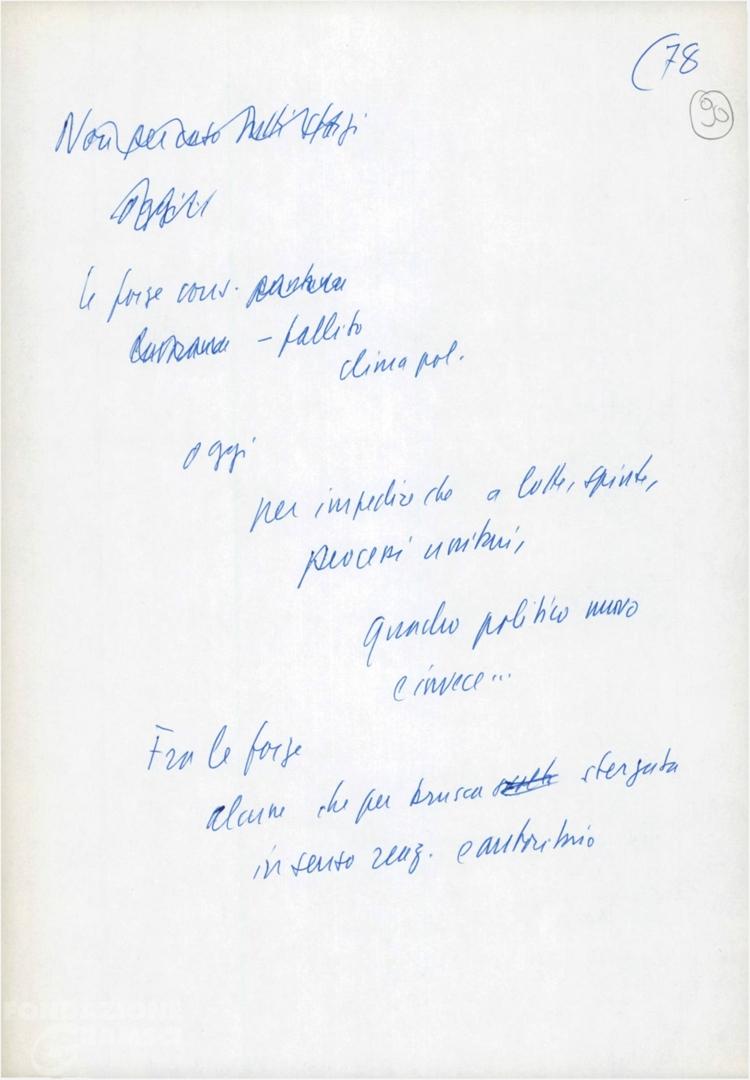 (78
90
Non per caso stragi
Oggi
le forze cons.
– fallito
clima pol.
oggi
per impedire che a lotte, spinte,
processi unitari,
quadro politico nuovo
e invece...
Fra le forze
alcune che per brusca sterzata
in senso reaz. e autoritario
FONDAZIONE
GRAMSCI